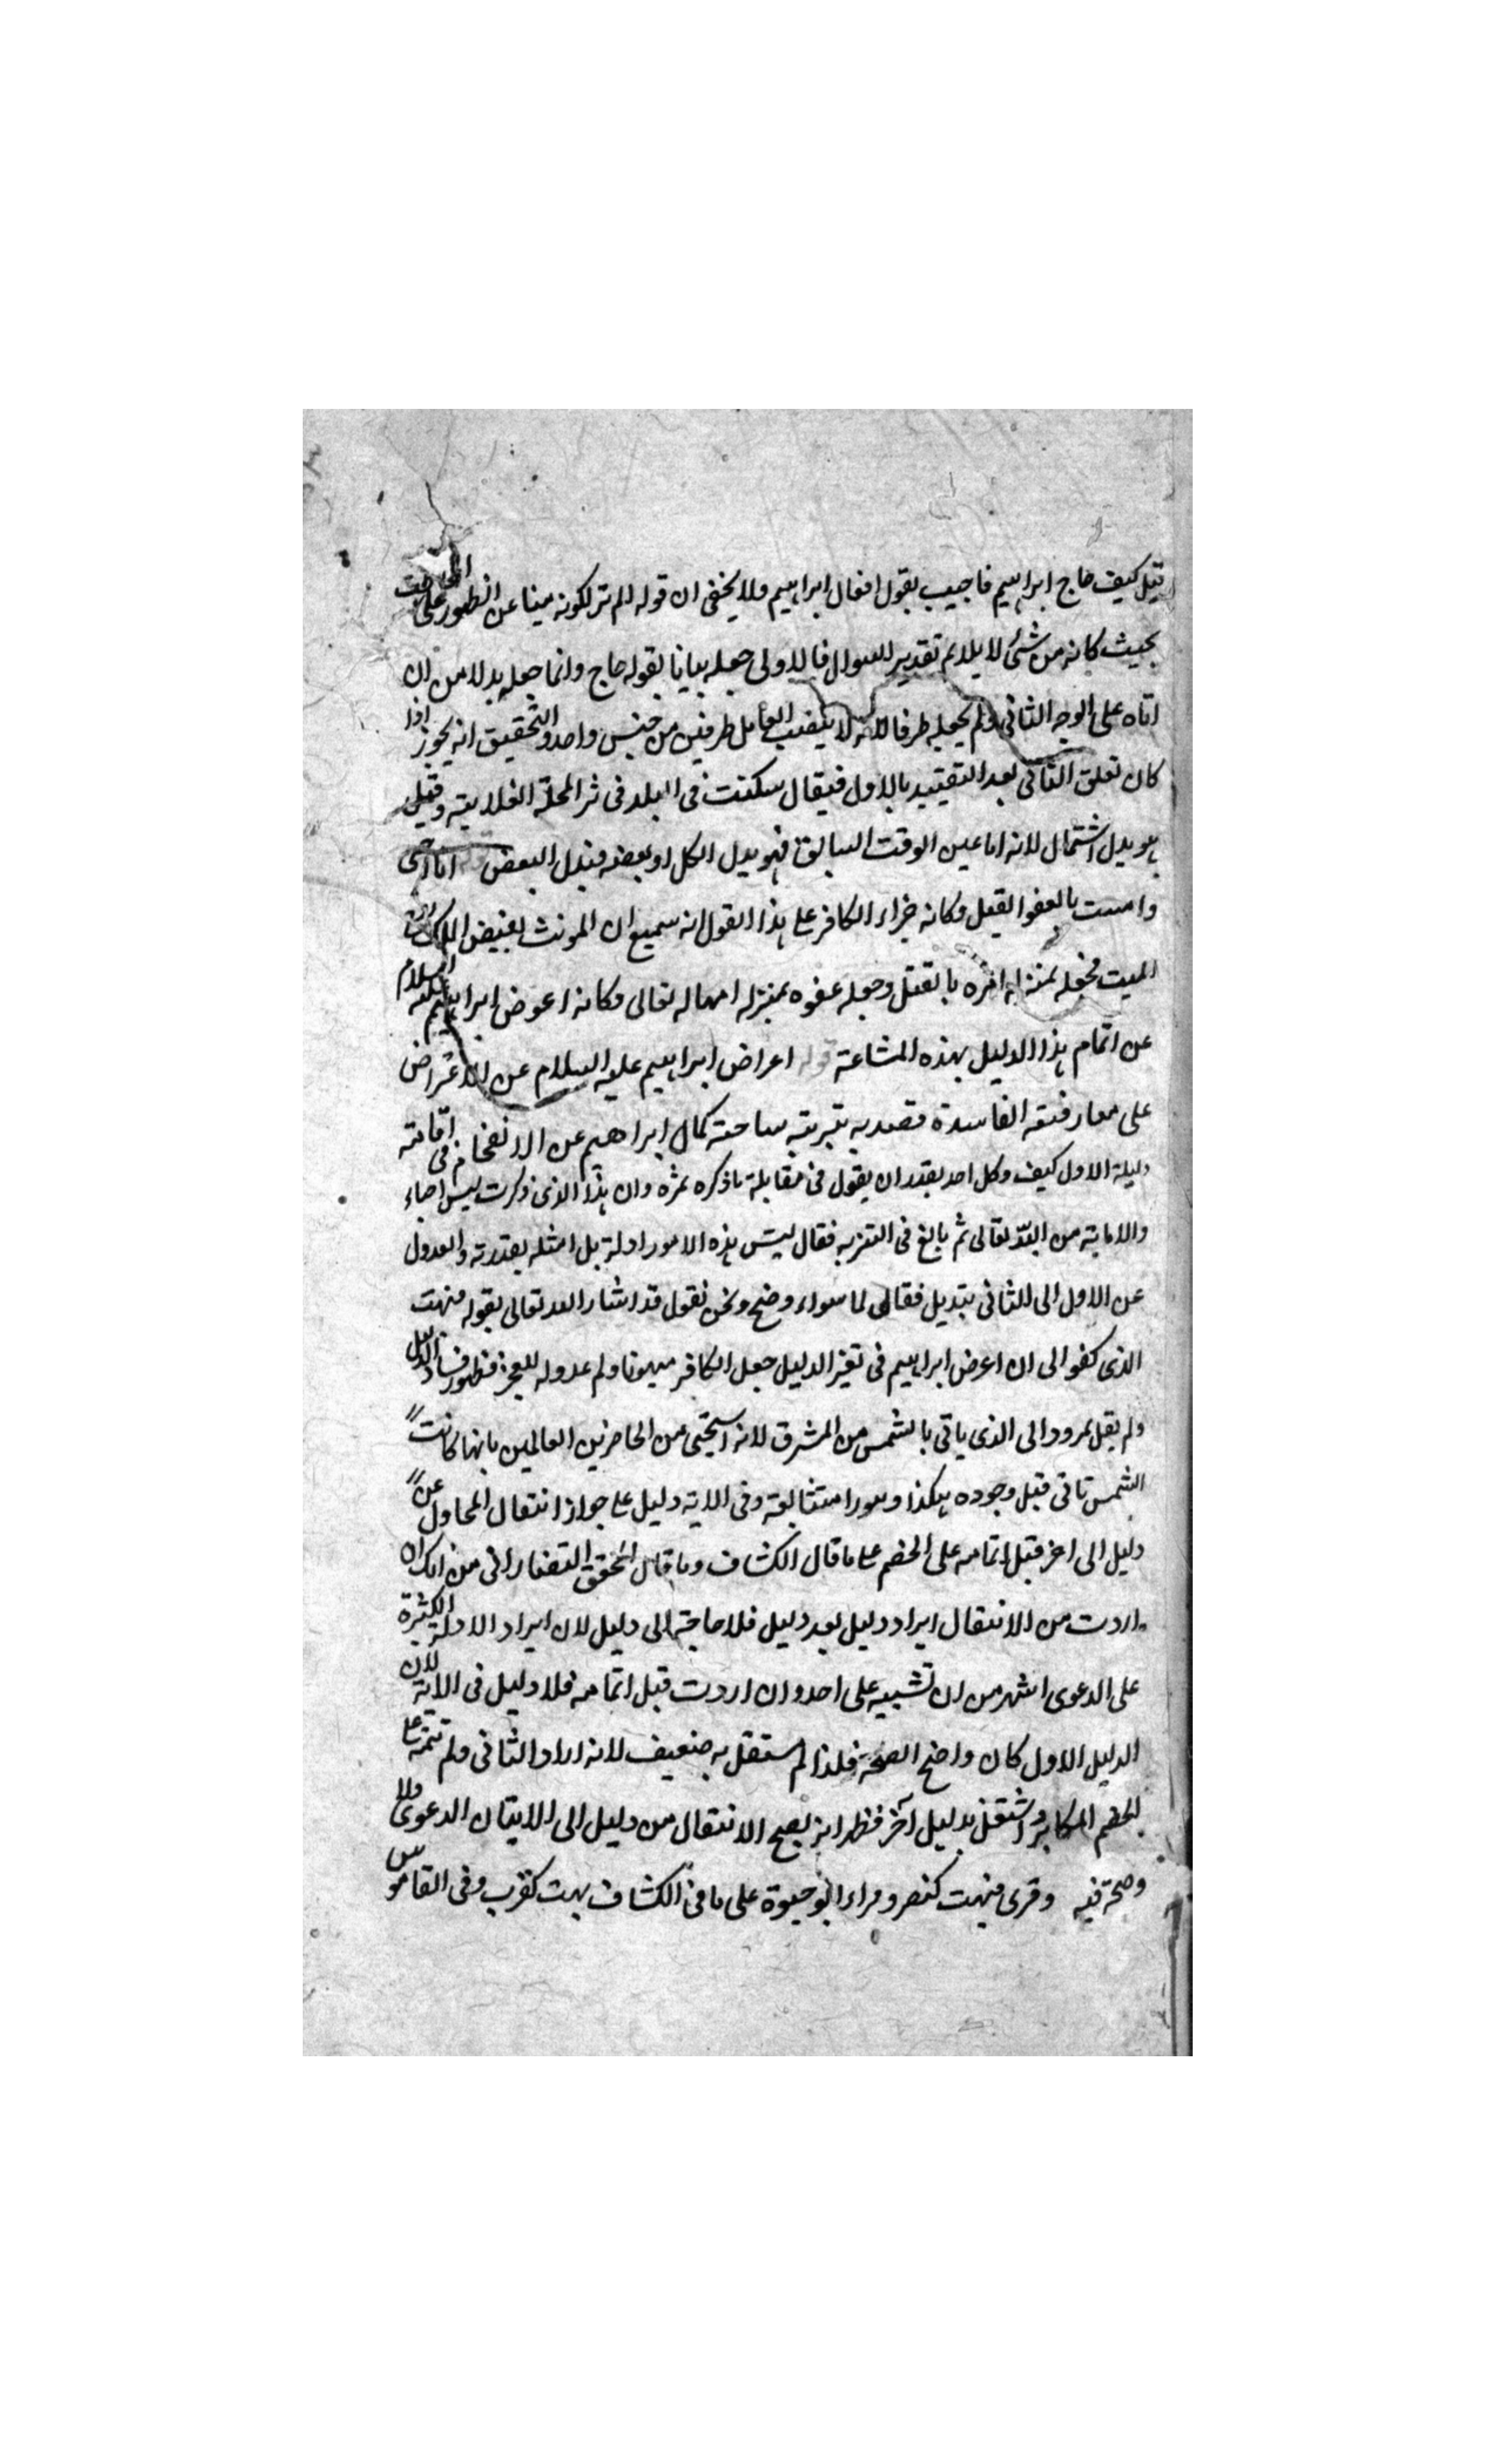 قيل كيف حاج ابراهيم فاجيب بقول افعال ابراهيم ولا يخفى ان قوله الم تر لكونه مبنيا عن الظهور على المخاطب
بحيث كانه من شئ لا يلايم تقدير السوال فالاولى جعله بيانا بقوله حاج وانما جعله بدلا من ان
اتاه على الوجه الثانى ولم يجعله ظرفا لانه لا ينصب العامل ظرفين من جنس واحد والتحقيق انه يجوز اذا
كان تعلق الثانى بعد التقييد بالاول فيقال سكنت فى البلد فى المحلة الفلانية وقيل
هو بدل اشتمال لانه اما عين الوقت السابق فهو بدل الكل او بعضه فبدل البعض قوله انا احى
واميت بالعفو القتل وكانه جزاء الكافر على هذا القول انه سميع ان المونث بغيض
الميت فجعله بمنزلة امره بالقتل وجعله عفوه بمنزلة امهاله تعالى وكانه اعرض ابراهيم عليه السلام
عن اتمام هذا الدليل بهذه المشاعة قوله اعراض ابراهيم عليه السلام عن الاعتراض
على معارضته الفاسدة قصد به تبرية ساحته كمال ابراهيم عن الانفحام فى اقامته
دليله الاول كيف وكل احد يقدر ان يقول فى مقابلة ما ذكره نمره وان هذا الذى ذكرت ليس احياء
والاماتة من الله تعالى ثم بالغ فى التنزيه فقال ليس هذه الامور ادلة بل امثله بقدرته والعدول
عن الاول الى الثانى بتديل فقال لما سواء وضح ونحن نقول قد اشار الله تعالى بقوله فبهت
الذى كفر الى ان اعرض ابراهيم فى تغير الدليل جعل الكافر مبهوتا ولم عدوله للعجز فظهور فساد الدليل
ولم يقل نمرود الى الذى ياتى بالشمس من المشرق لانه استحيى من الحاضرين العالمين بانها كانت
الشمس تاتى قبل وجوده هكذا وفى الاية دليل على جواز انتقال المحاول عن
دليل الى اخر قبل اتمامه على الخصم على ما قال الكشاف وما قال المحقق التفتازانى من انك ان
اردت من الانتقال ايراد دليل بعد دليل فلا حاجة الى دليل لان ايراد الادلة الكثيرة
على الدعوى اشهر من ان تشبيه على احد وان اردت قبل اتمامه فلا دليل فى الاية لان
الدليل الاول كان واضح الصحة فلذا لم يستقل به ضعيف لانه اراد الثانى ولم يتمه على
الخصم المكابر واشتغل بدليل آخر فظهر انه يصح الانتقال من دليل الى الايتان الدعوى ولا
وصحة فيه وقرى فبهت كنصر وقراء ابو حيوة على ما فى الكشاف بهت كقرب وفى القاموس